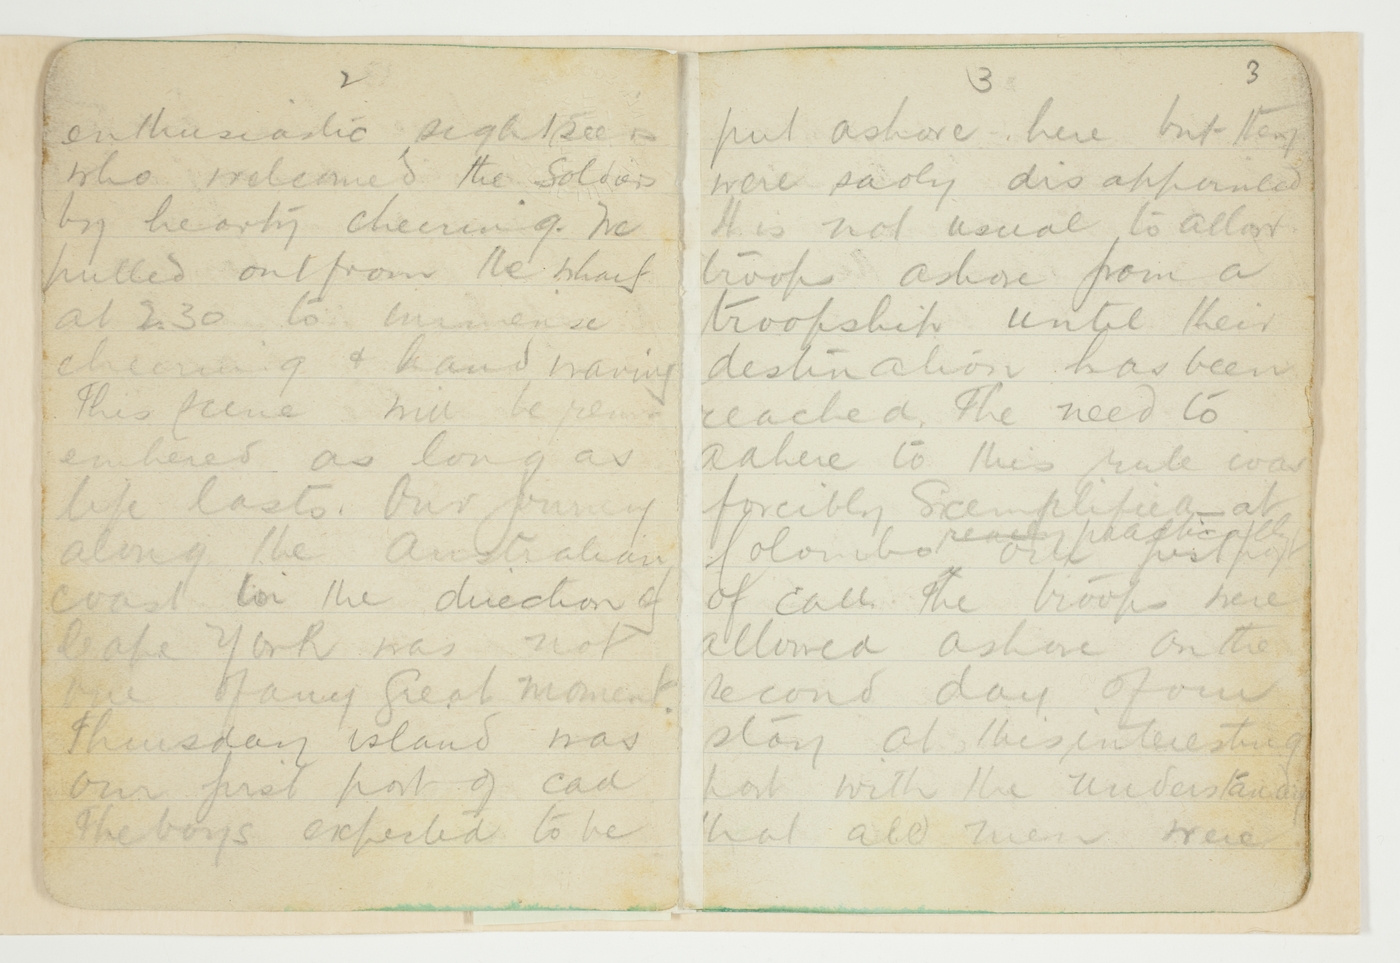 2
enthusiastic sightseers
who welcomed the Soldiers
by hearty cheering. We
pulled out from the wharf
at 2.30 to immense
cheering & hand waving
This scene will be rem-
embered as long as
life lasts. Our journey
along the Australian
coast in the direction of
Cape York was not
one of any great moment.
Thursday island was
our first port of call
The boys expected to be
3
3
put ashore here but they
were sadly disappointed
It is not usual to allow
troops ashore from a
troopship until their
destination has been
reached. The need to
adhere to this rule was
forcibly Exemplified at
really practically
Colombo our first port
of call. The troops were
allowed ashore on the
second day of our
stay at this interesting
port with the understanding
that all men were